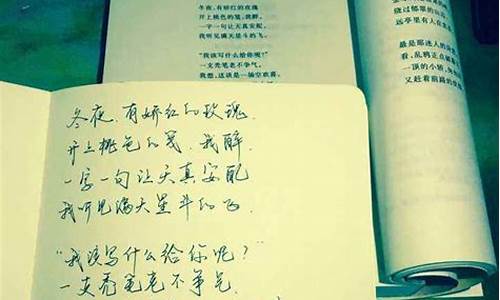 冬夜，有娇红的玫瑰
开上桃色的笺，我醉，
一字一句让天真安配，
我听见满天星斗的飞。
“我该写什么给你呢？”
一支秃笔老不争气，
我想，这该是一场空欢喜，
远亭里有人在
最是那迷人的
看，乱鸦正点破
一顶的小轿，
又赶着前路的
冬夜，有娇红的玫瑰，
开上桃色的笺，我醉
一字一句让天真安配
我听见满天星斗的飞.
“我该写什么给你呢？”
一支秃笔老不争气.